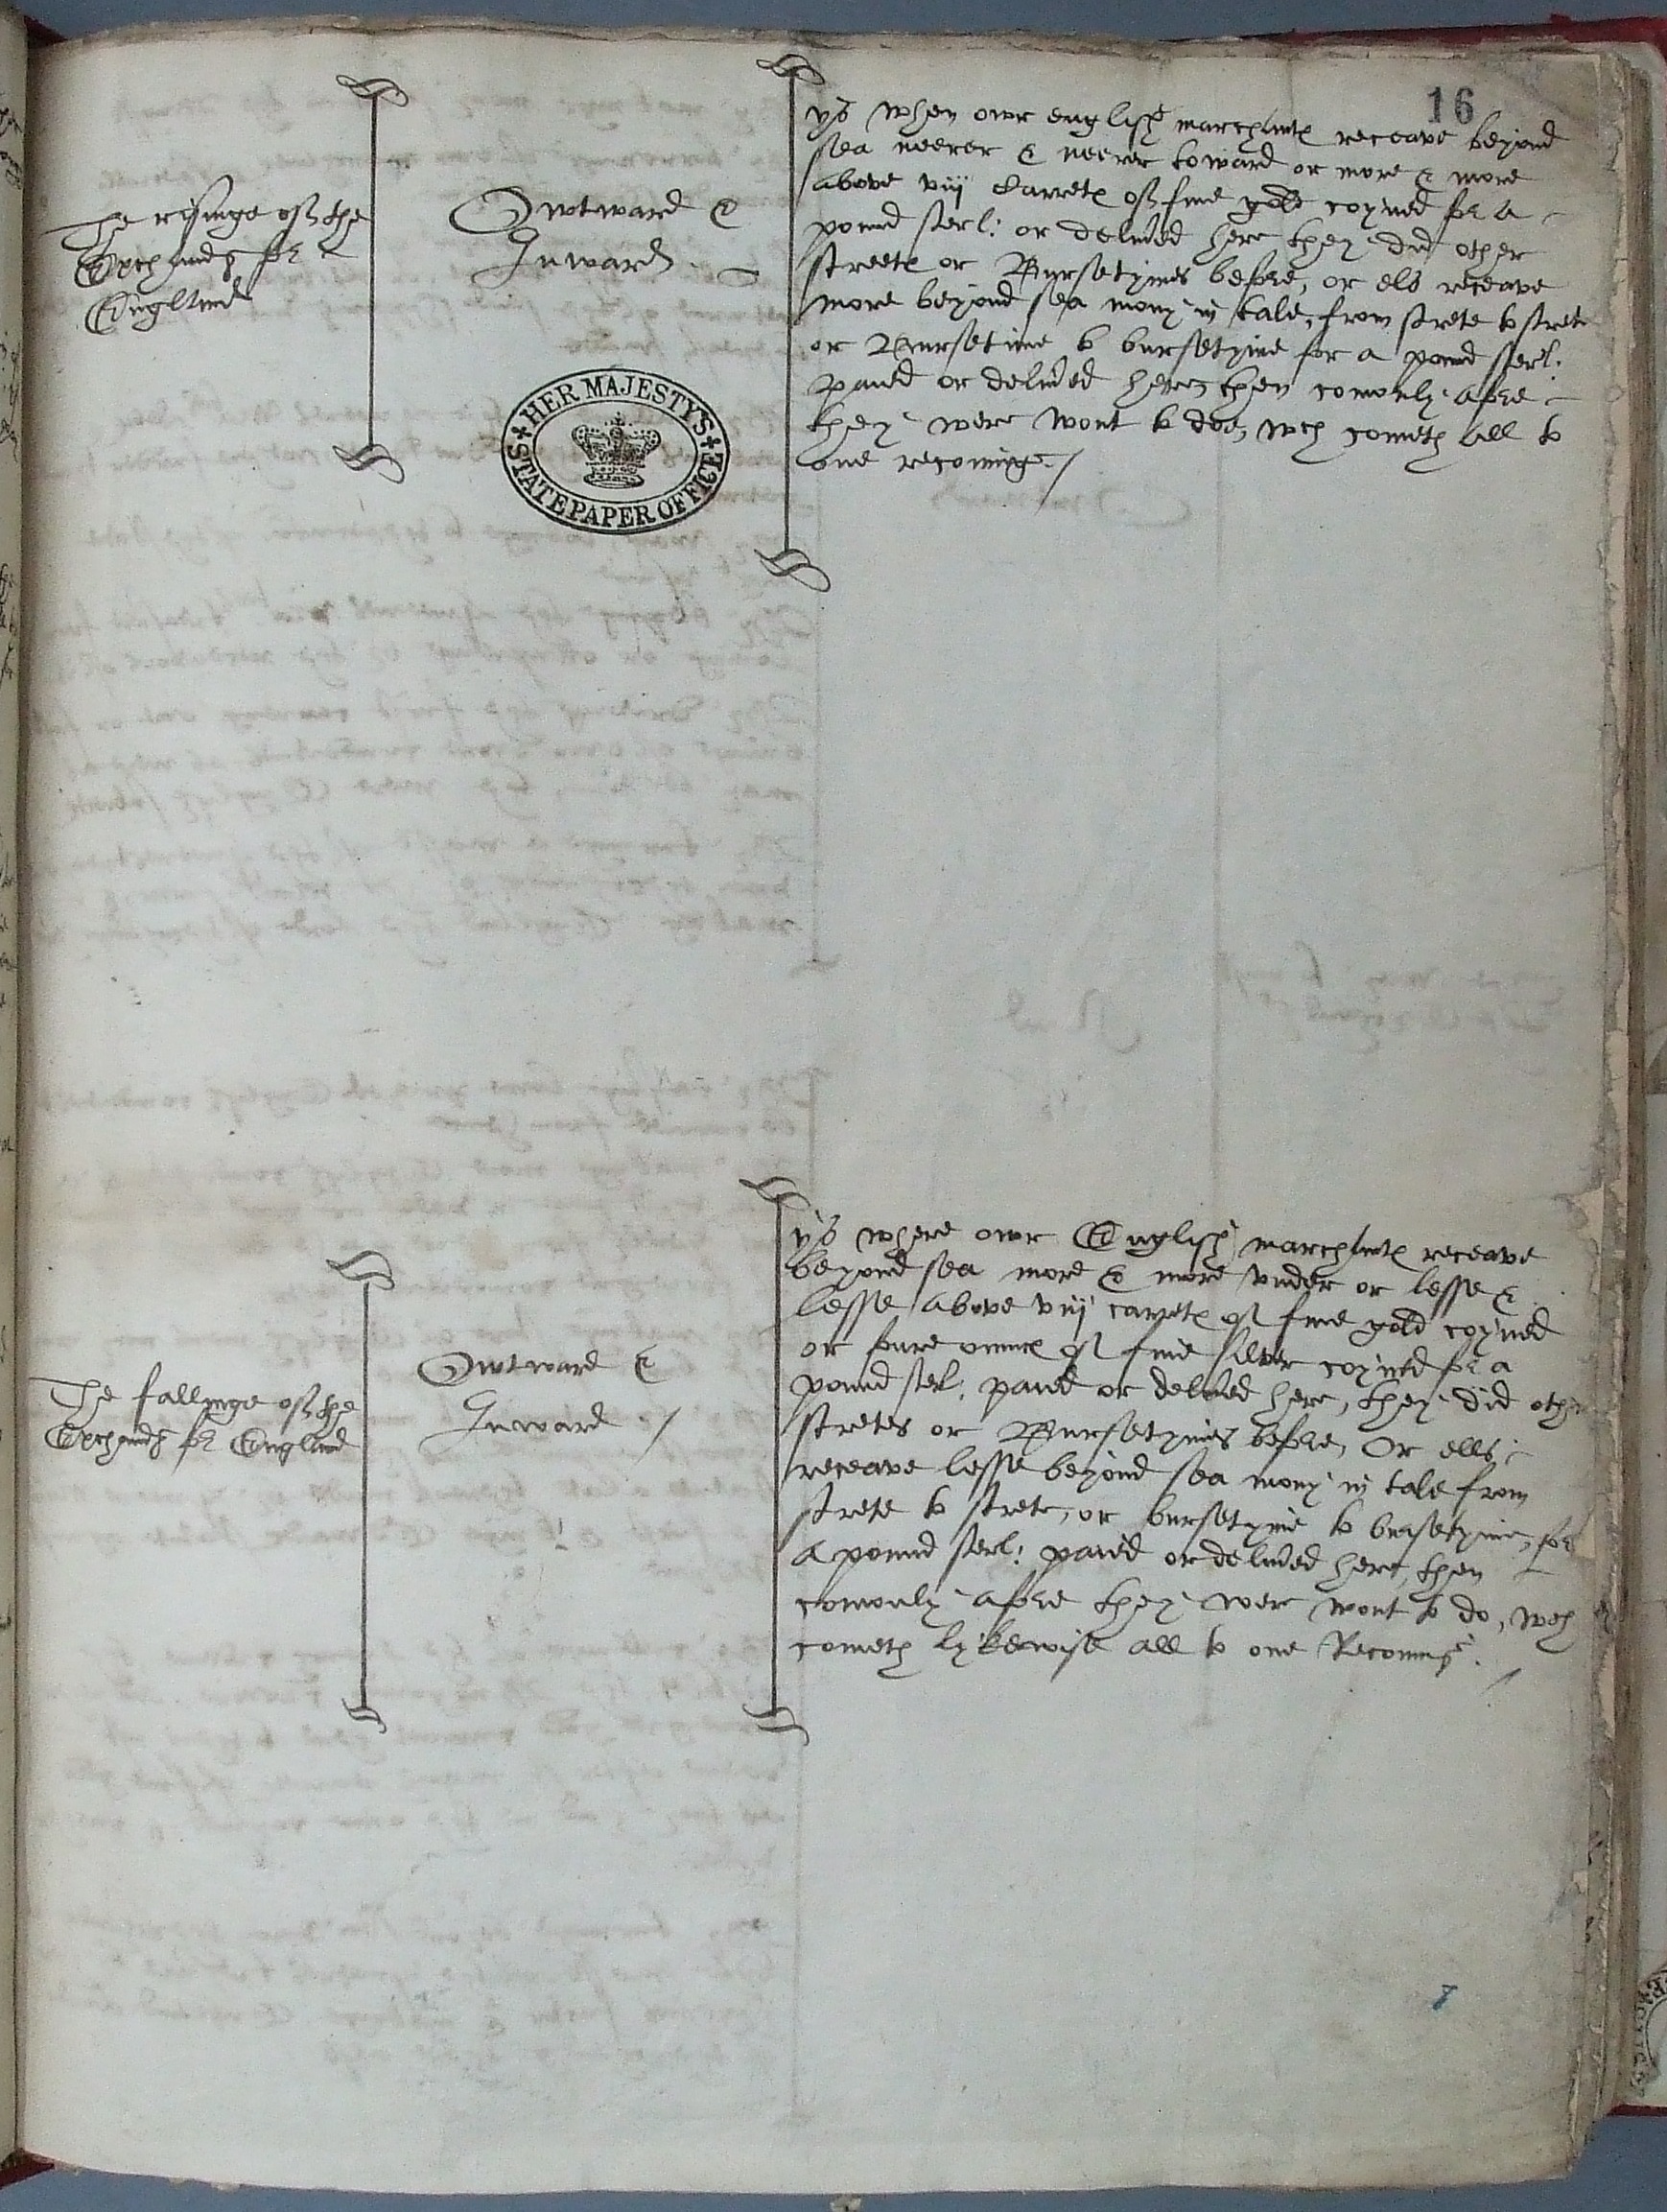 16
The risinge off the
Exchaunge for
England
Owtward &
Inward
ys when owr english marchants receave beyond
sea neerer & neerer toward or more & more
above viij Carrets off fine gold coyned for a
pound sterl: or delived here they did other
streets or Bursetymes before, or els receave
more beyond sea mony in tale, from strete to strete
or Bursetime to bursetyme for a pound sterl:
paied or delived here, then comonly afore
they were wont to doe, wch cometh all to
one reconinge./
HER MAJESTYS
STATE PAPER OFFICE
The fallinge off the
Exchaunge for England
Owtward &
Inward /
ys where owr English marchants receave
beyond sea more & more vnder or lesse &
lesse above viij carrets of fine gold coyned
or foure ounces of fine silver coyned for a
pound sterl: paied or delived here, they did other
stretes or Bursetymes before, Or ells
receave lesse beyond sea mony in tale from
strete to strete, or bursetyme to bursetyme, for
a pound sterl: paied or delived here, then
comonly afore they wer wont to do, wch
cometh lykewise all to one Reconinge. /